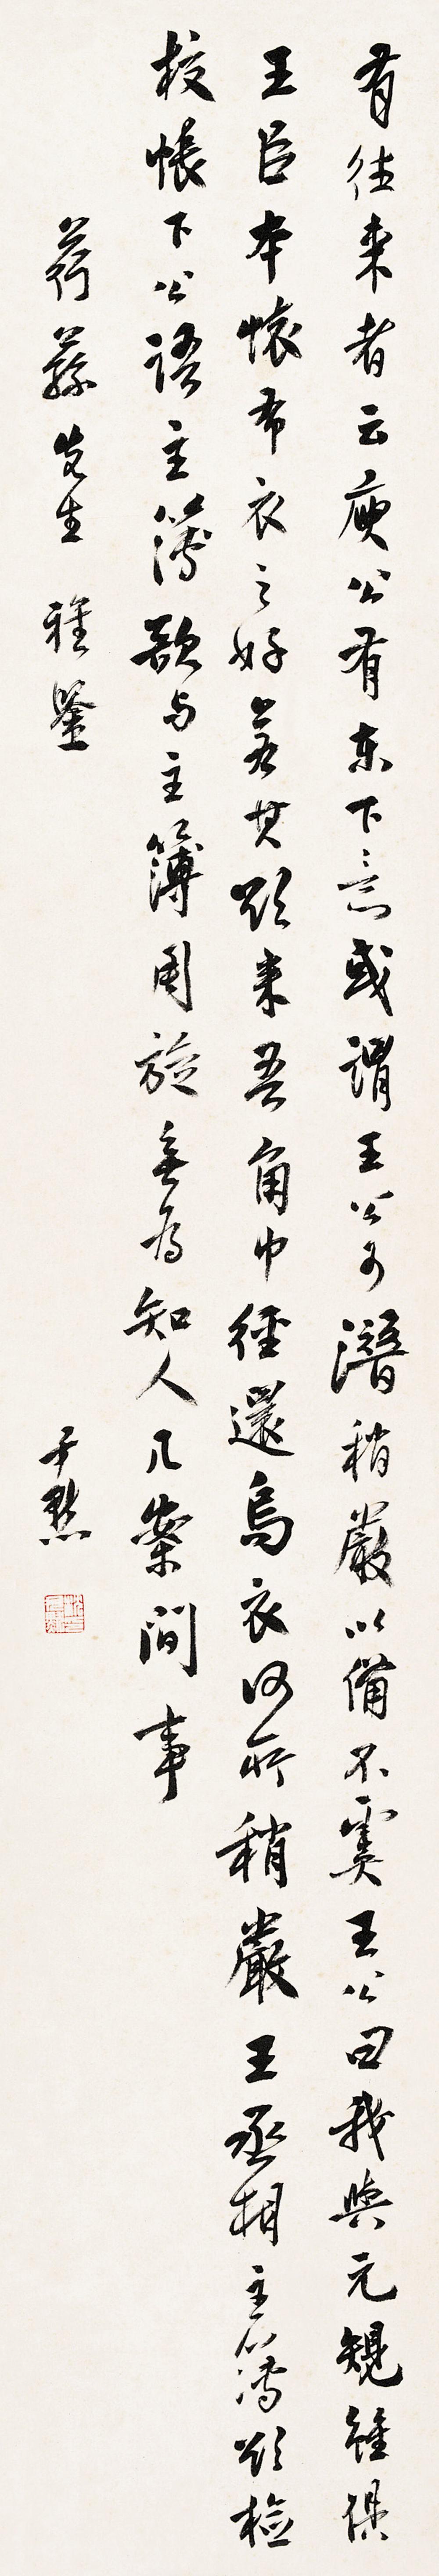 有往来者云庾公有东下意或谓王公可潜稍嚴以備不虞王公曰我與元規雖俱
王臣本懐布衣之好若其欲来吾角巾徑還烏衣何所稍嚴王丞相主簿欲檢
校帳下公語主簿欲与主簿周旋無為知人几案間事
荷蓀先生 雅鑒
于默